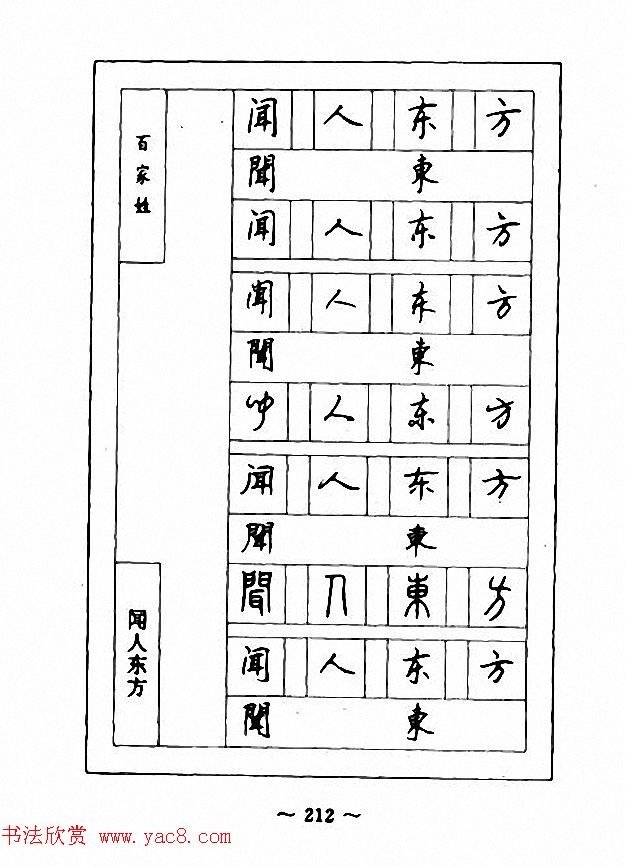 百家姓
闻 人 东 方
聞 東
闻 人 东 方
闻 人 东 方
聞 東
闻 人 东 方
闻 人 东 方
聞 東
聞 人 東 方
闻 人 东 方
聞 東
闻人东方
~ 212 ~
书法欣赏 www.yac8.com